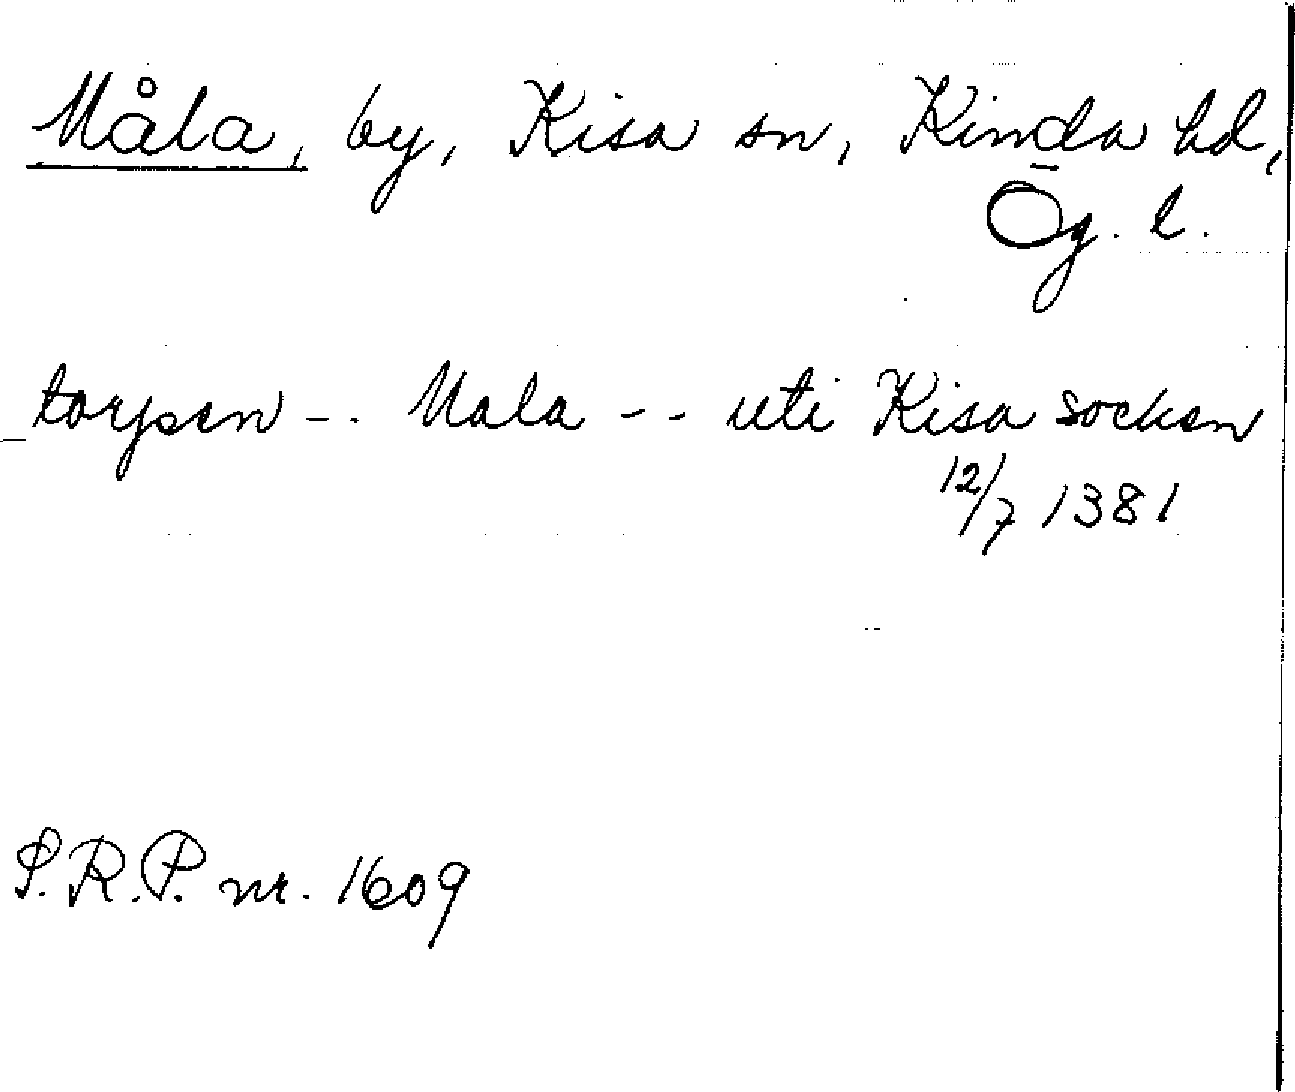 Måla, by, Kisa sn, Kinda hd,
Ög. l.
torpen -- Mala -- uti Kisa socken
12/7 1381
S.R.P. nr. 1609